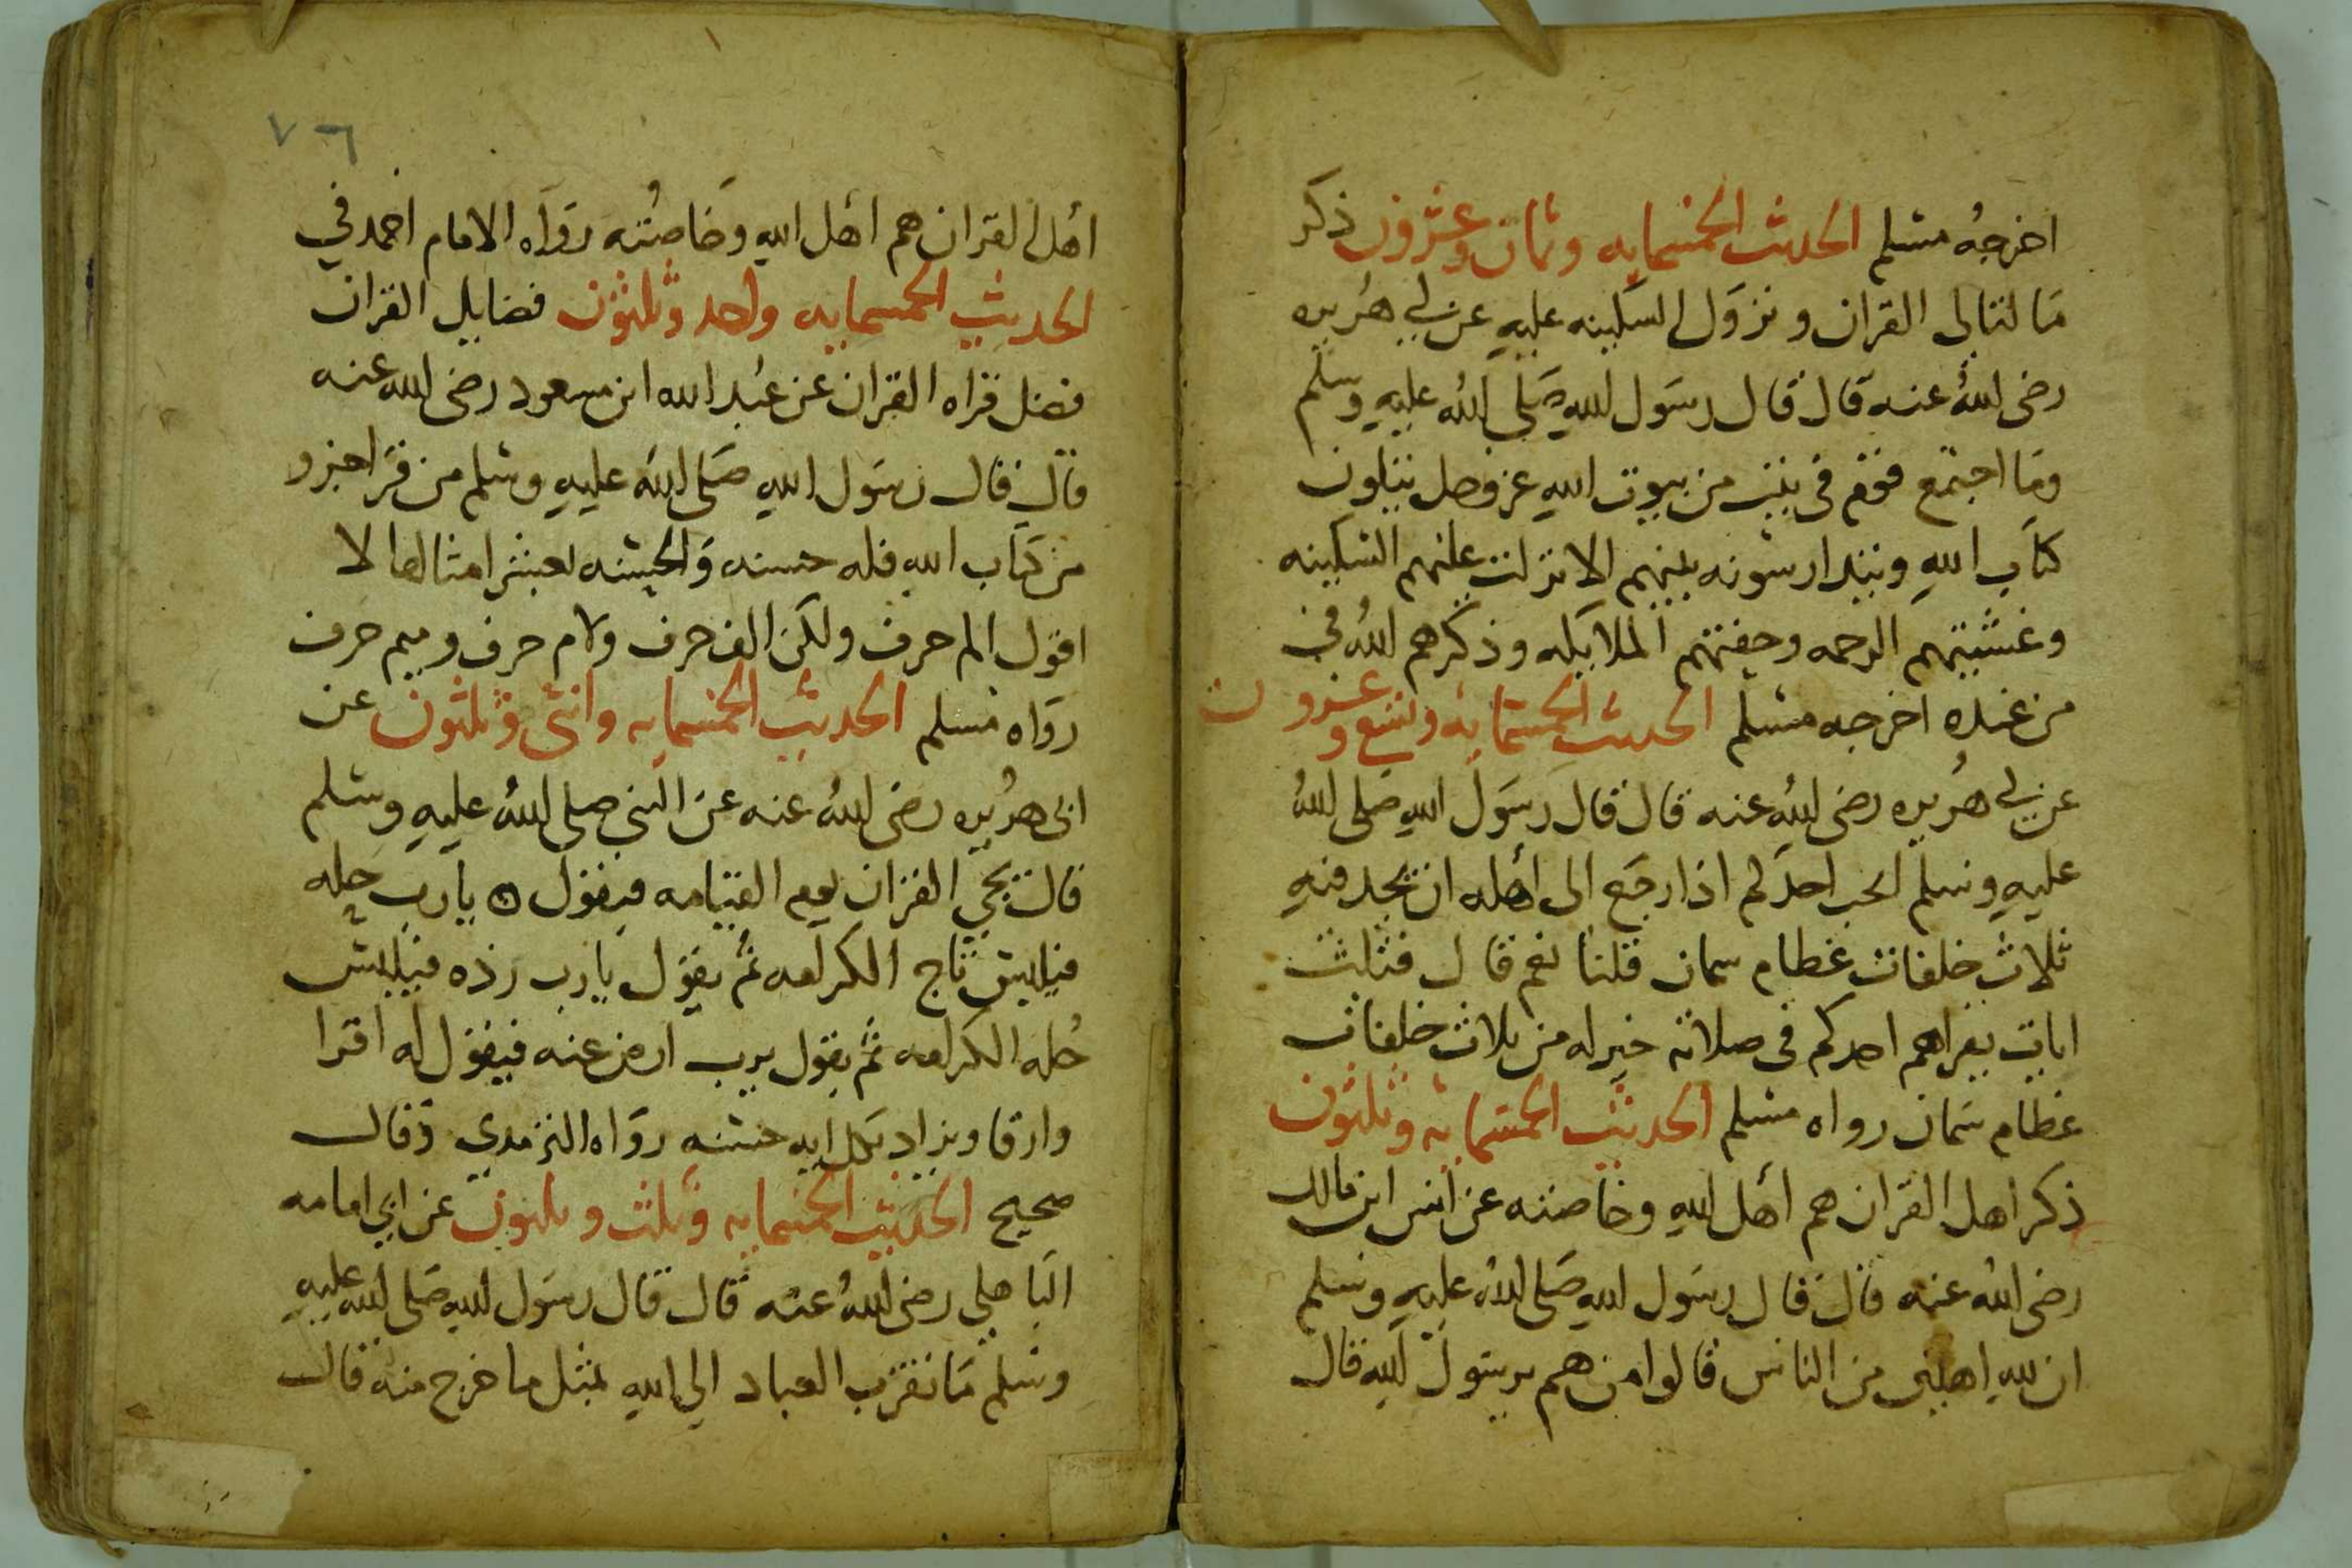 اخرجه مسلم الحديث الخمسمايه وثمان وعشرون ذكر
ما لتالى القران ونزول السكينه عليه عن ابي هريره
رضى الله عنه قال قال رسول الله صلى الله عليه وسلم
وما اجتمع قوم فى بيت من بيوت الله عز وجل يتلون
كتاب الله ويتدارسونه بينهم الا نزلت عليهم السكينه
وغشيتهم الرحمه وحفتهم الملايكه وذكرهم الله في
من عنده اخرجه مسلم الحديث الخمسمايه وتسع وعشرون
عن ابي هريره رضى الله عنه قال قال رسول الله صلى الله
عليه وسلم ايحب احدكم اذا رجع الى أهله ان يجد فيه
ثلاث خلفات عظام سمان قلنا نعم قال فثلث
ايات يقراهم احدكم فى صلاته خير له من ثلاث خلفات
عظام سمان رواه مسلم الحديث الخمسمايه وثلثون
ذكر اهل القران هم أهل الله وخاصته عن انس ابن مالك
رضى الله عنه قال قال رسول الله صلى الله عليه وسلم
ان لله اهلين من الناس قالوا من هم يرسول الله قال
٧٦
أهل القران هم أهل الله وخاصته رواه الامام احمد في
الحديث الخمسمايه واحد وثلثون فضايل القران
فضل قراه القران عن عبد الله ابن مسعود رضى الله عنه
قال قال رسول الله صلى الله عليه وسلم من قرا حرو
من كتاب الله فله حسنه والحسنه بعشر امثالها لا
اقول الم حرف ولكن الف حرف ولام حرف وميم حرف
رواه مسلم الحديث الخمسمايه واثنى وثلثون عن
ابى هريره رضى الله عنه عن النبى صلى الله عليه وسلم
قال يجي القران يوم القيامه فيقول يارب حله
فيلبس تاج الكرامه ثم يقول يارب زده فيلبس
حُله الكرامه ثم يقول يرب ارض عنه فيقول له اقرا
وارقا ويزاد بكل ايه حسنه رواه الترمدي وقال
صحيح الحديث الخمسمايه وثلث وثلثون عن ابي امامه
الباهلي رضى الله عنه قال قال رسول الله صلى الله عليه
وسلم ما تقرب العباد الي الله بمثل ما خرج منه قال